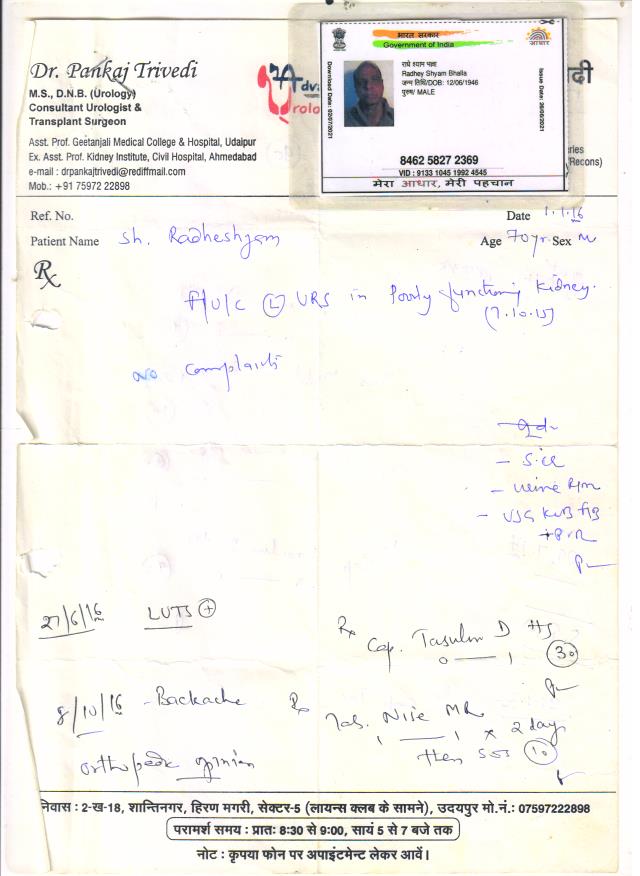 Dr. Pankaj Trivedi
M.S., D.N.B. (Urology)
Consultant Urologist &
Transplant Surgeon
Asst. Prof. Geetanjali Medical College & Hospital, Udaipur
Ex. Asst. Prof. Kidney Institute, Civil Hospital, Ahmedabad
e-mail : drpankajtrivedi@rediffmail.com
Mob.: +91 75972 22898
Adv
Urolo
भारत सरकार
Government of India
आधार
Download Date: 02/07/2021
राधे श्याम भल्ला
Radhey Shyam Bhalla
जन्म तिथि/DOB: 12/06/1946
पुरुष/ MALE
Issue Date: 26/06/2021
8462 5827 2369
VID : 9133 1045 1992 4545
मेरा आधार, मेरी पहचान
दी
ries
Recons)
Ref. No.
Date 1.1.16
Patient Name Sh. Radheshyam
Age 70yr Sex M
Rx
F/U/C (L) URS in Poorly functioning Kidney.
(7.10.15)
no complaints
Adv
- S.Cr
- Urine R/m
- USG KUB
+ PVR
27/6/16 LUTS (+)
Rx Cap. Tasulin D HS
0 — 1 (30)
8/10/16 - Backache
Rx Tab. Nise MR
1 — 1 x 2 day
then SOS (10)
Orthopedic opinion
निवास : 2-ख-18, शान्तिनगर, हिरण मगरी, सेक्टर-5 (लायन्स क्लब के सामने), उदयपुर मो.नं.: 07597222898
परामर्श समय : प्रातः 8:30 से 9:00, सायं 5 से 7 बजे तक
नोट : कृपया फोन पर अपाइंटमेन्ट लेकर आवें।